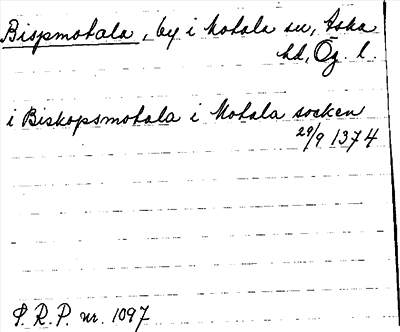 Bispmotala, by i Motala sn, Aska
hd, Ög. l.
i Biskopsmotala i Motala socken
29/9 1374
S. R. P. nr. 1097